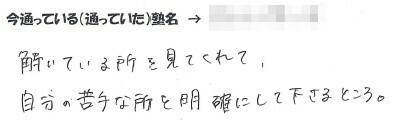 今通っている(通っていた)塾名 →
解いている所を見てくれて、
自分の苦手な所を明確にして下さるところ。